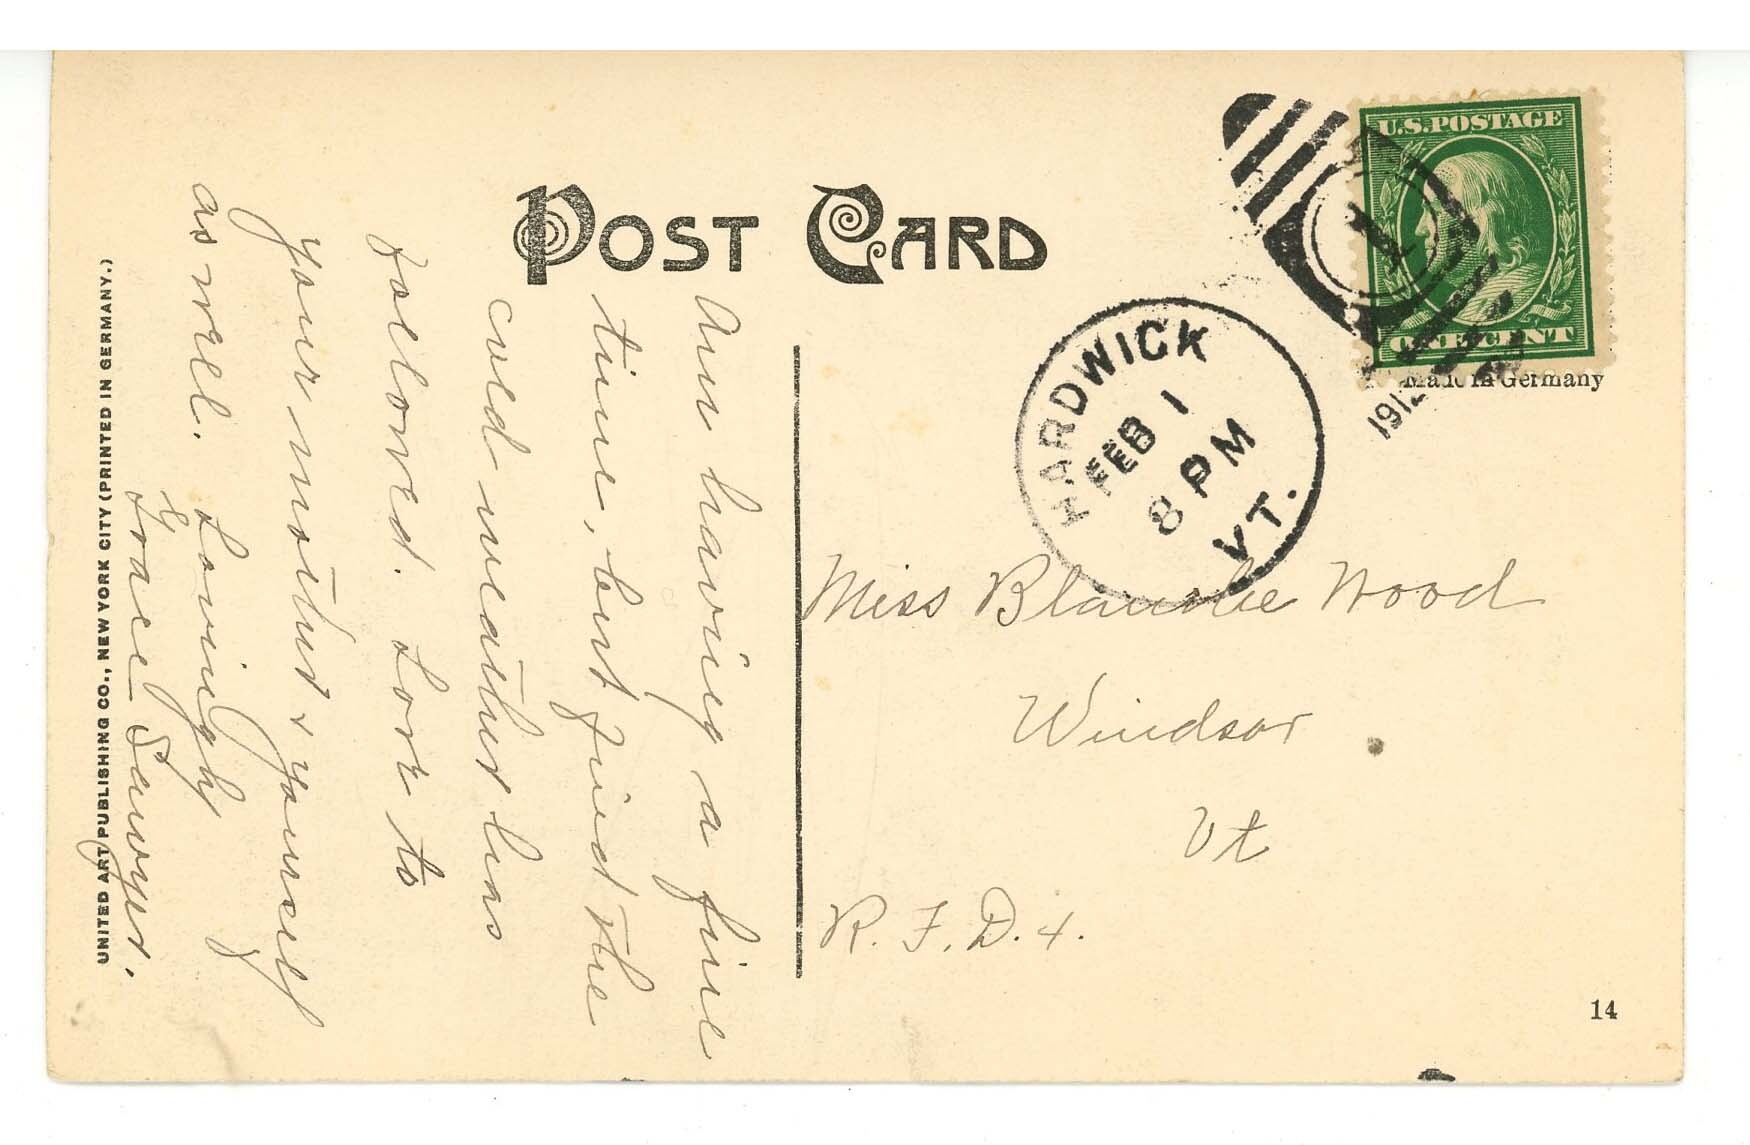 POST CARD
U.S. POSTAGE
ONE CENT
Made in Germany
1912
HARDWICK
FEB 1
8 PM
VT.
Am having a fine
time, but find the
cold weather has
followed. Love to
your mother & yourself
as well. Lovingly
Grace Sawyer.
Miss Blanche Wood
Windsor
Vt
R. F. D. 4.
14
UNITED ART PUBLISHING CO., NEW YORK CITY (PRINTED IN GERMANY.)